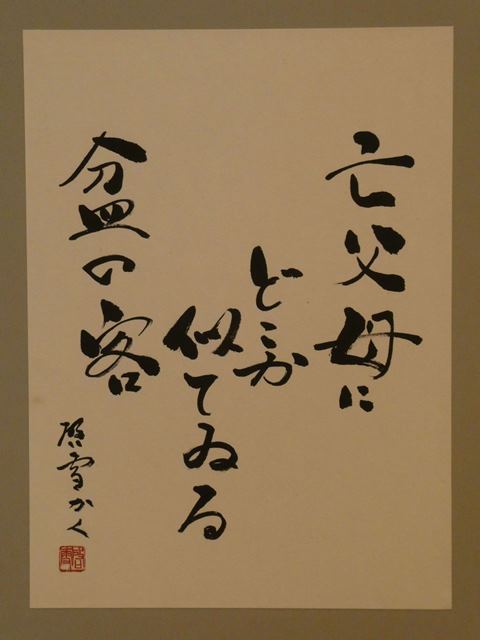 亡父母に
どこか
似てゐる
盆の客
啓雪かく